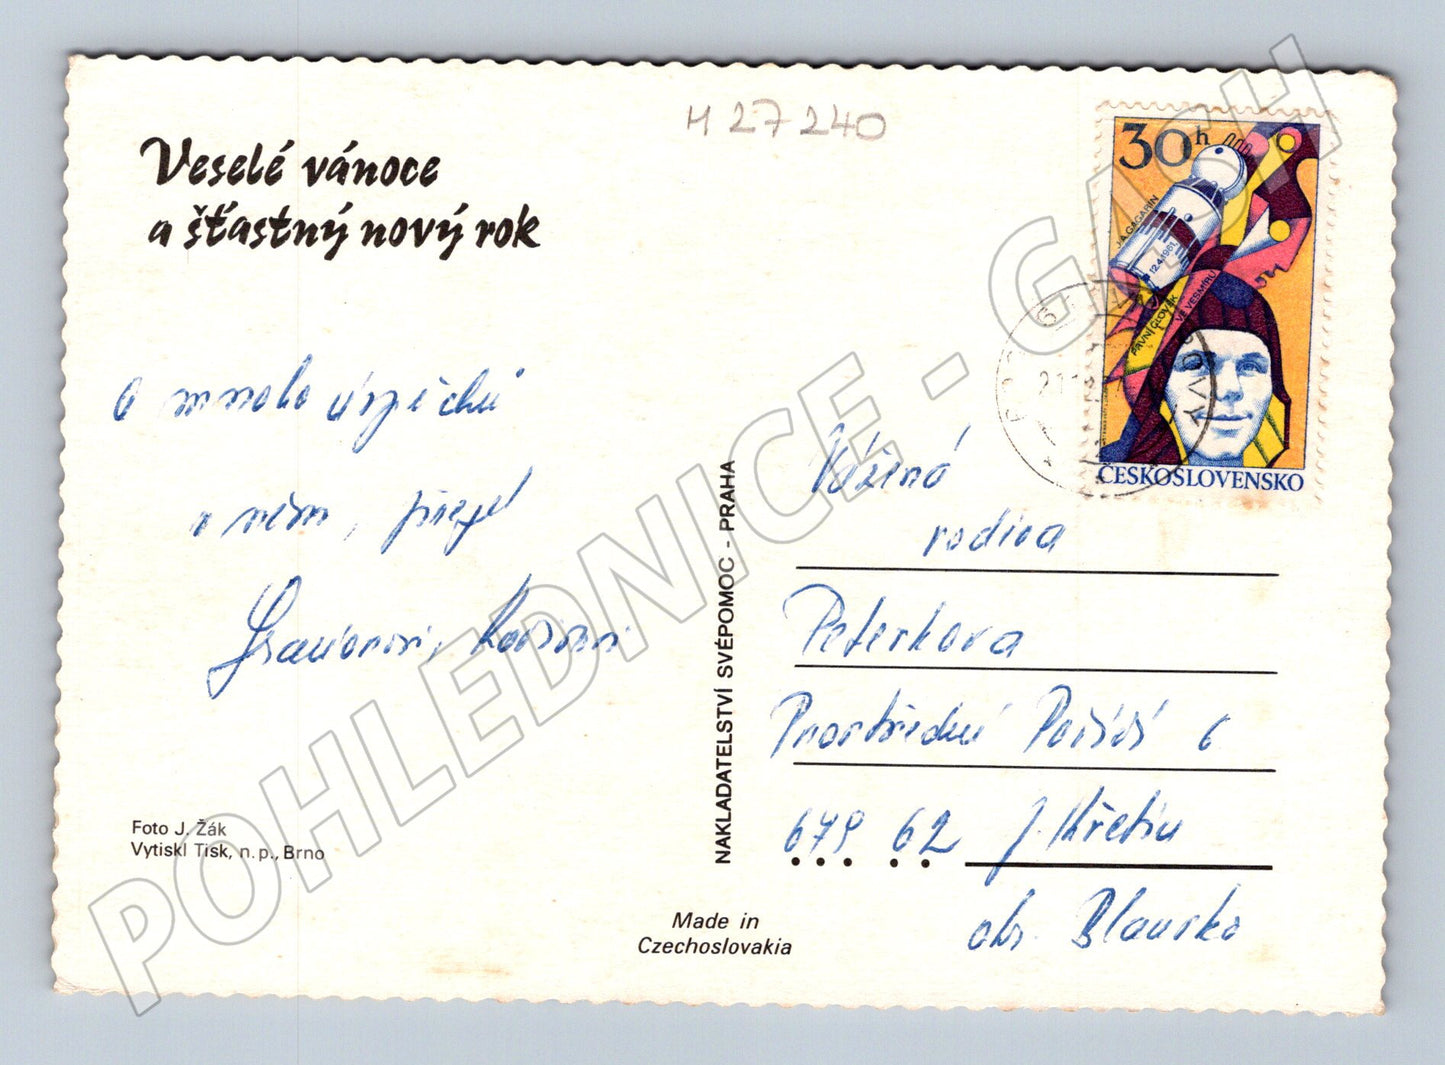 M 27 240
Veselé vánoce
a šťastný nový rok
30h
J.A. GAGARIN
12.4.1961
PRVNÍ ČLOVĚK
VE VESMÍRU
ČESKOSLOVENSKO
A mnoho úspěchů
v něm, přejí
Vážená
rodina
Peterkova
Prostřední Poříčí 6
679 62 p. Křetín
okr. Blansko
NAKLADATELSTVÍ SVÉPOMOC - PRAHA
Foto J. Žák
Vytiskl Tisk, n. p., Brno
Made in
Czechoslovakia
POHLEDNICE - GACH